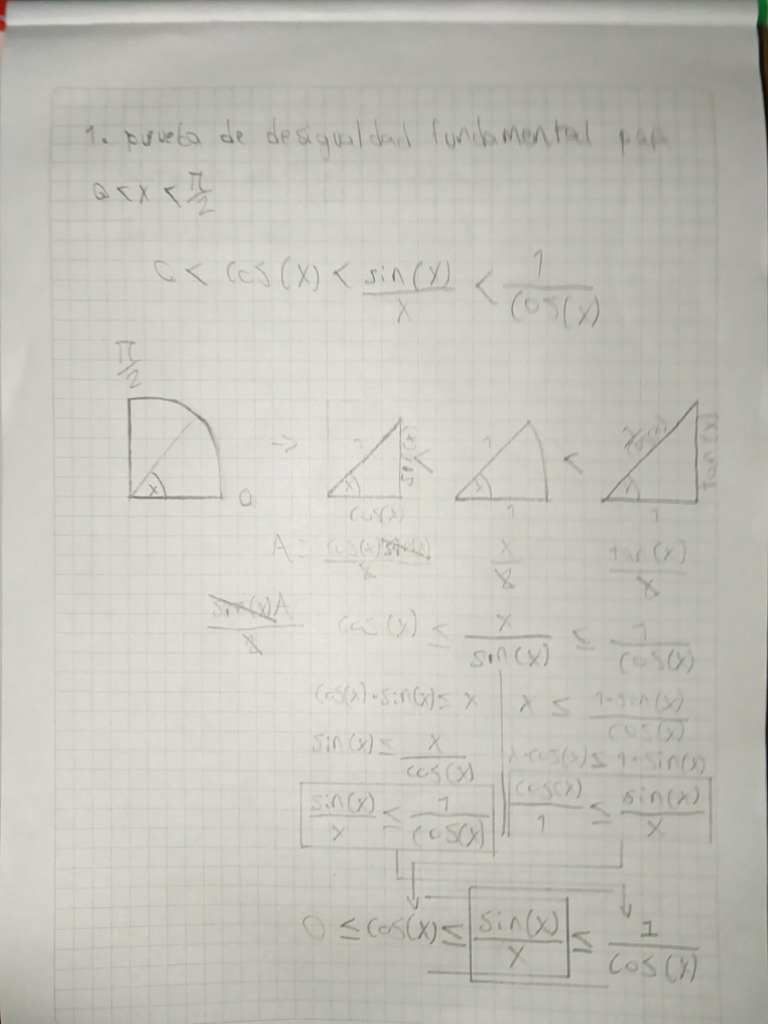 1. prueba de desigualdad fundamental para
0 < x < π/2
0 < cos(x) < sin(x)/x < 1/cos(x)
π/2
x 0 → 1 x sin(x) cos(x) < 1 x 1 < x tan(x) 1
A = cos(x)sin(x)/2 x/2 tan(x)/2
sin(x)A/2 cos(x) ≤ x/sin(x) ≤ 1/cos(x)
cos(x)·sin(x) ≤ x | x ≤ 1·sin(x)/cos(x)
sin(x) ≤ x/cos(x) | x·cos(x) ≤ 1·sin(x)
sin(x)/x ≤ 1/cos(x) | cos(x)/1 ≤ sin(x)/x
0 ≤ cos(x) ≤ sin(x)/x ≤ 1/cos(x)